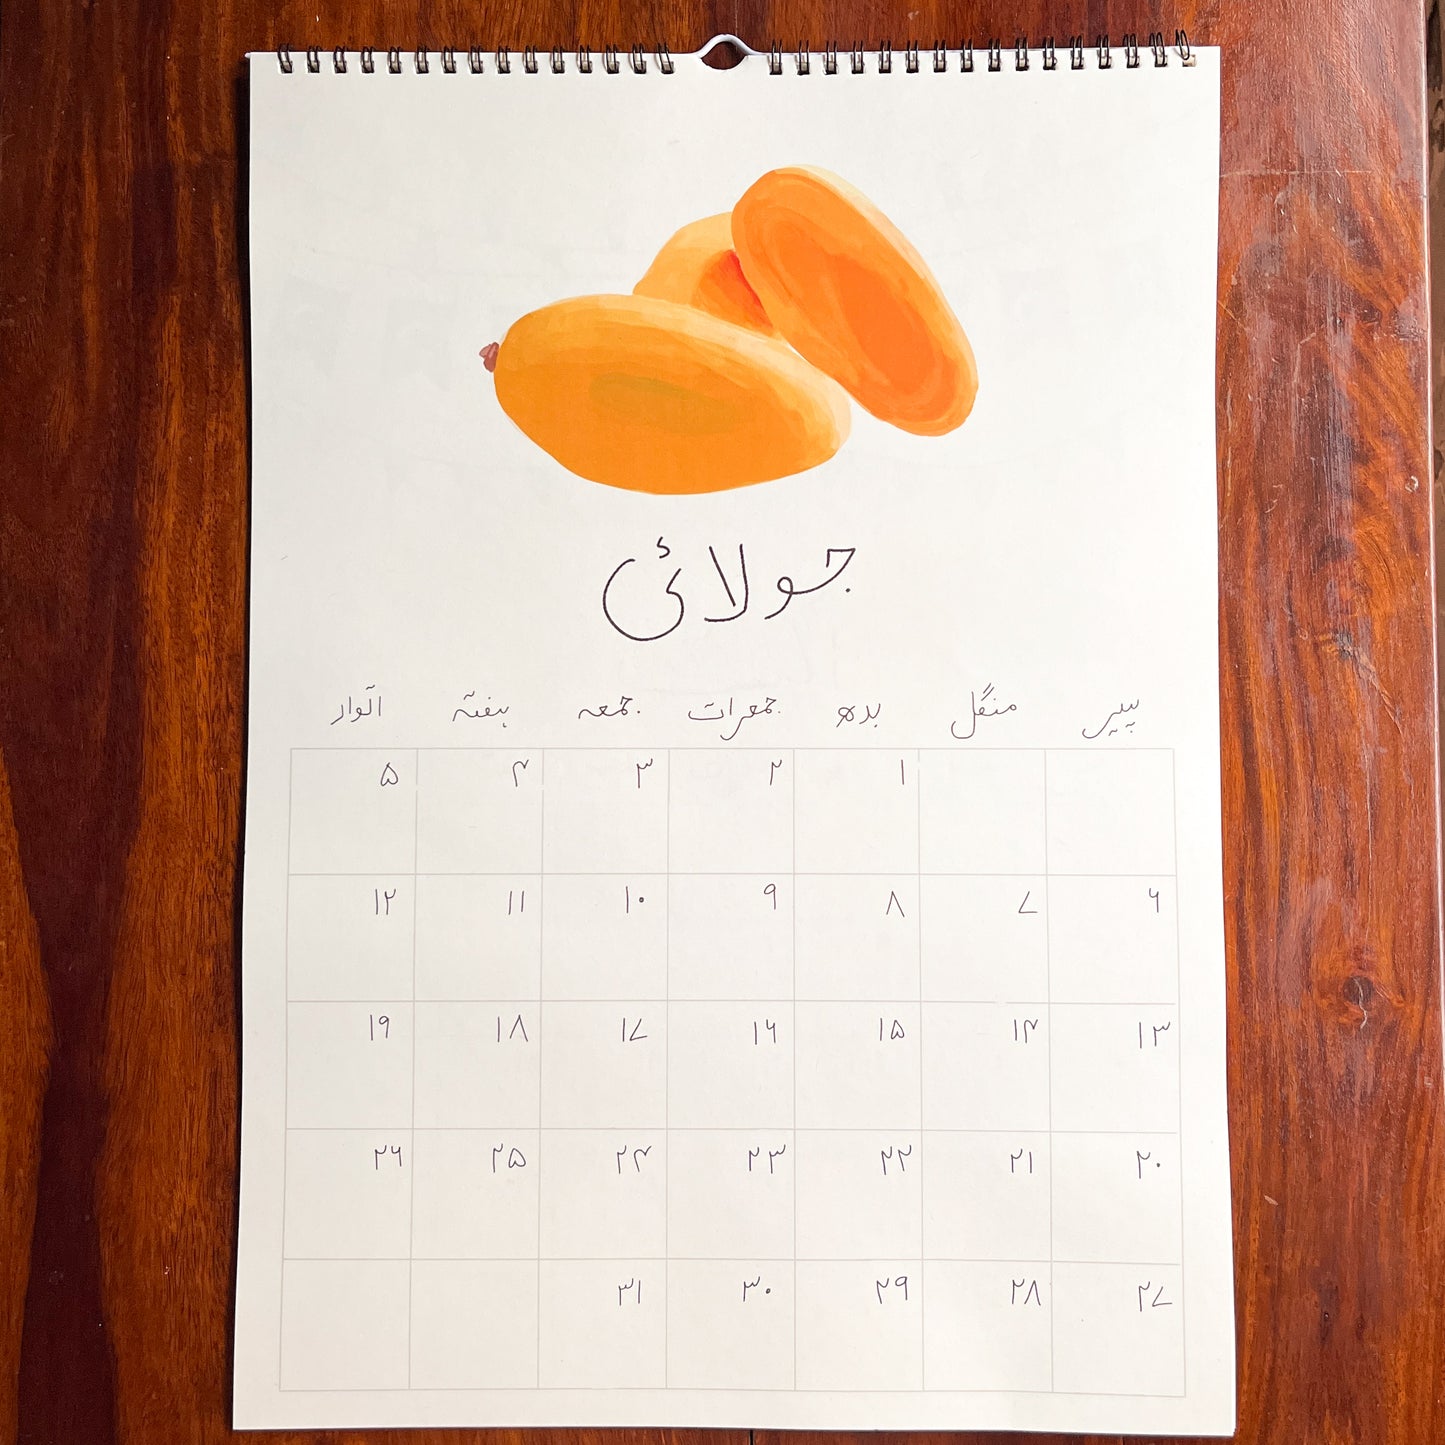 جولائ
پیر منگل بدھ جمعرات جمعہ ہفتہ اتوار
۱ ۲ ۳ ۴ ۵
۶ ۷ ۸ ۹ ۱۰ ۱۱ ۱۲
۱۳ ۱۴ ۱۵ ۱۶ ۱۷ ۱۸ ۱۹
۲۰ ۲۱ ۲۲ ۲۳ ۲۴ ۲۵ ۲۶
۲۷ ۲۸ ۲۹ ۳۰ ۳۱